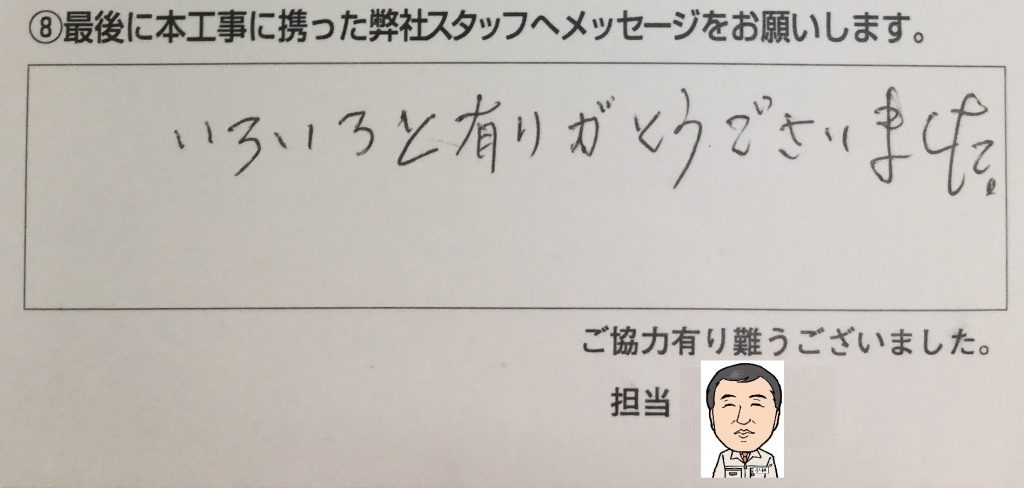 ⑧最後に本工事に携った弊社スタッフへメッセージをお願いします。
いろいろと有りがとうございました。
ご協力有り難うございました。
担当